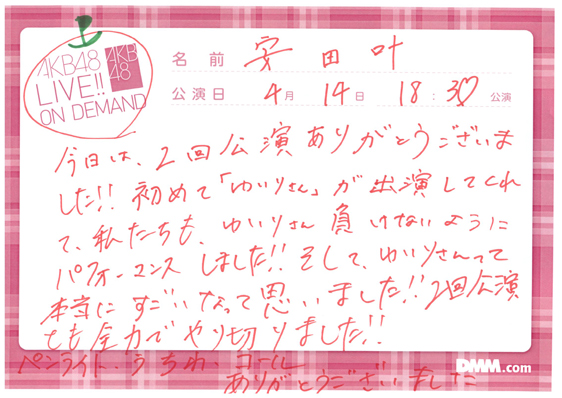 AKB48
LIVE!!
ON DEMAND
AKB
48
名前 安田叶
公演日 4月 14日 18:30 公演
今日は、2回公演ありがとうございま
した!! 初めて「ゆいりさん」が出演してくれ
て、私たちも、ゆいりさん負けないように
パフォーマンスしました!! そして、ゆいりさんって
本当にすごいなって思いました!! 2回公演
とも全力でやり切りました!!
ペンライト、うちわ、コール
ありがとうございました
DMM.com